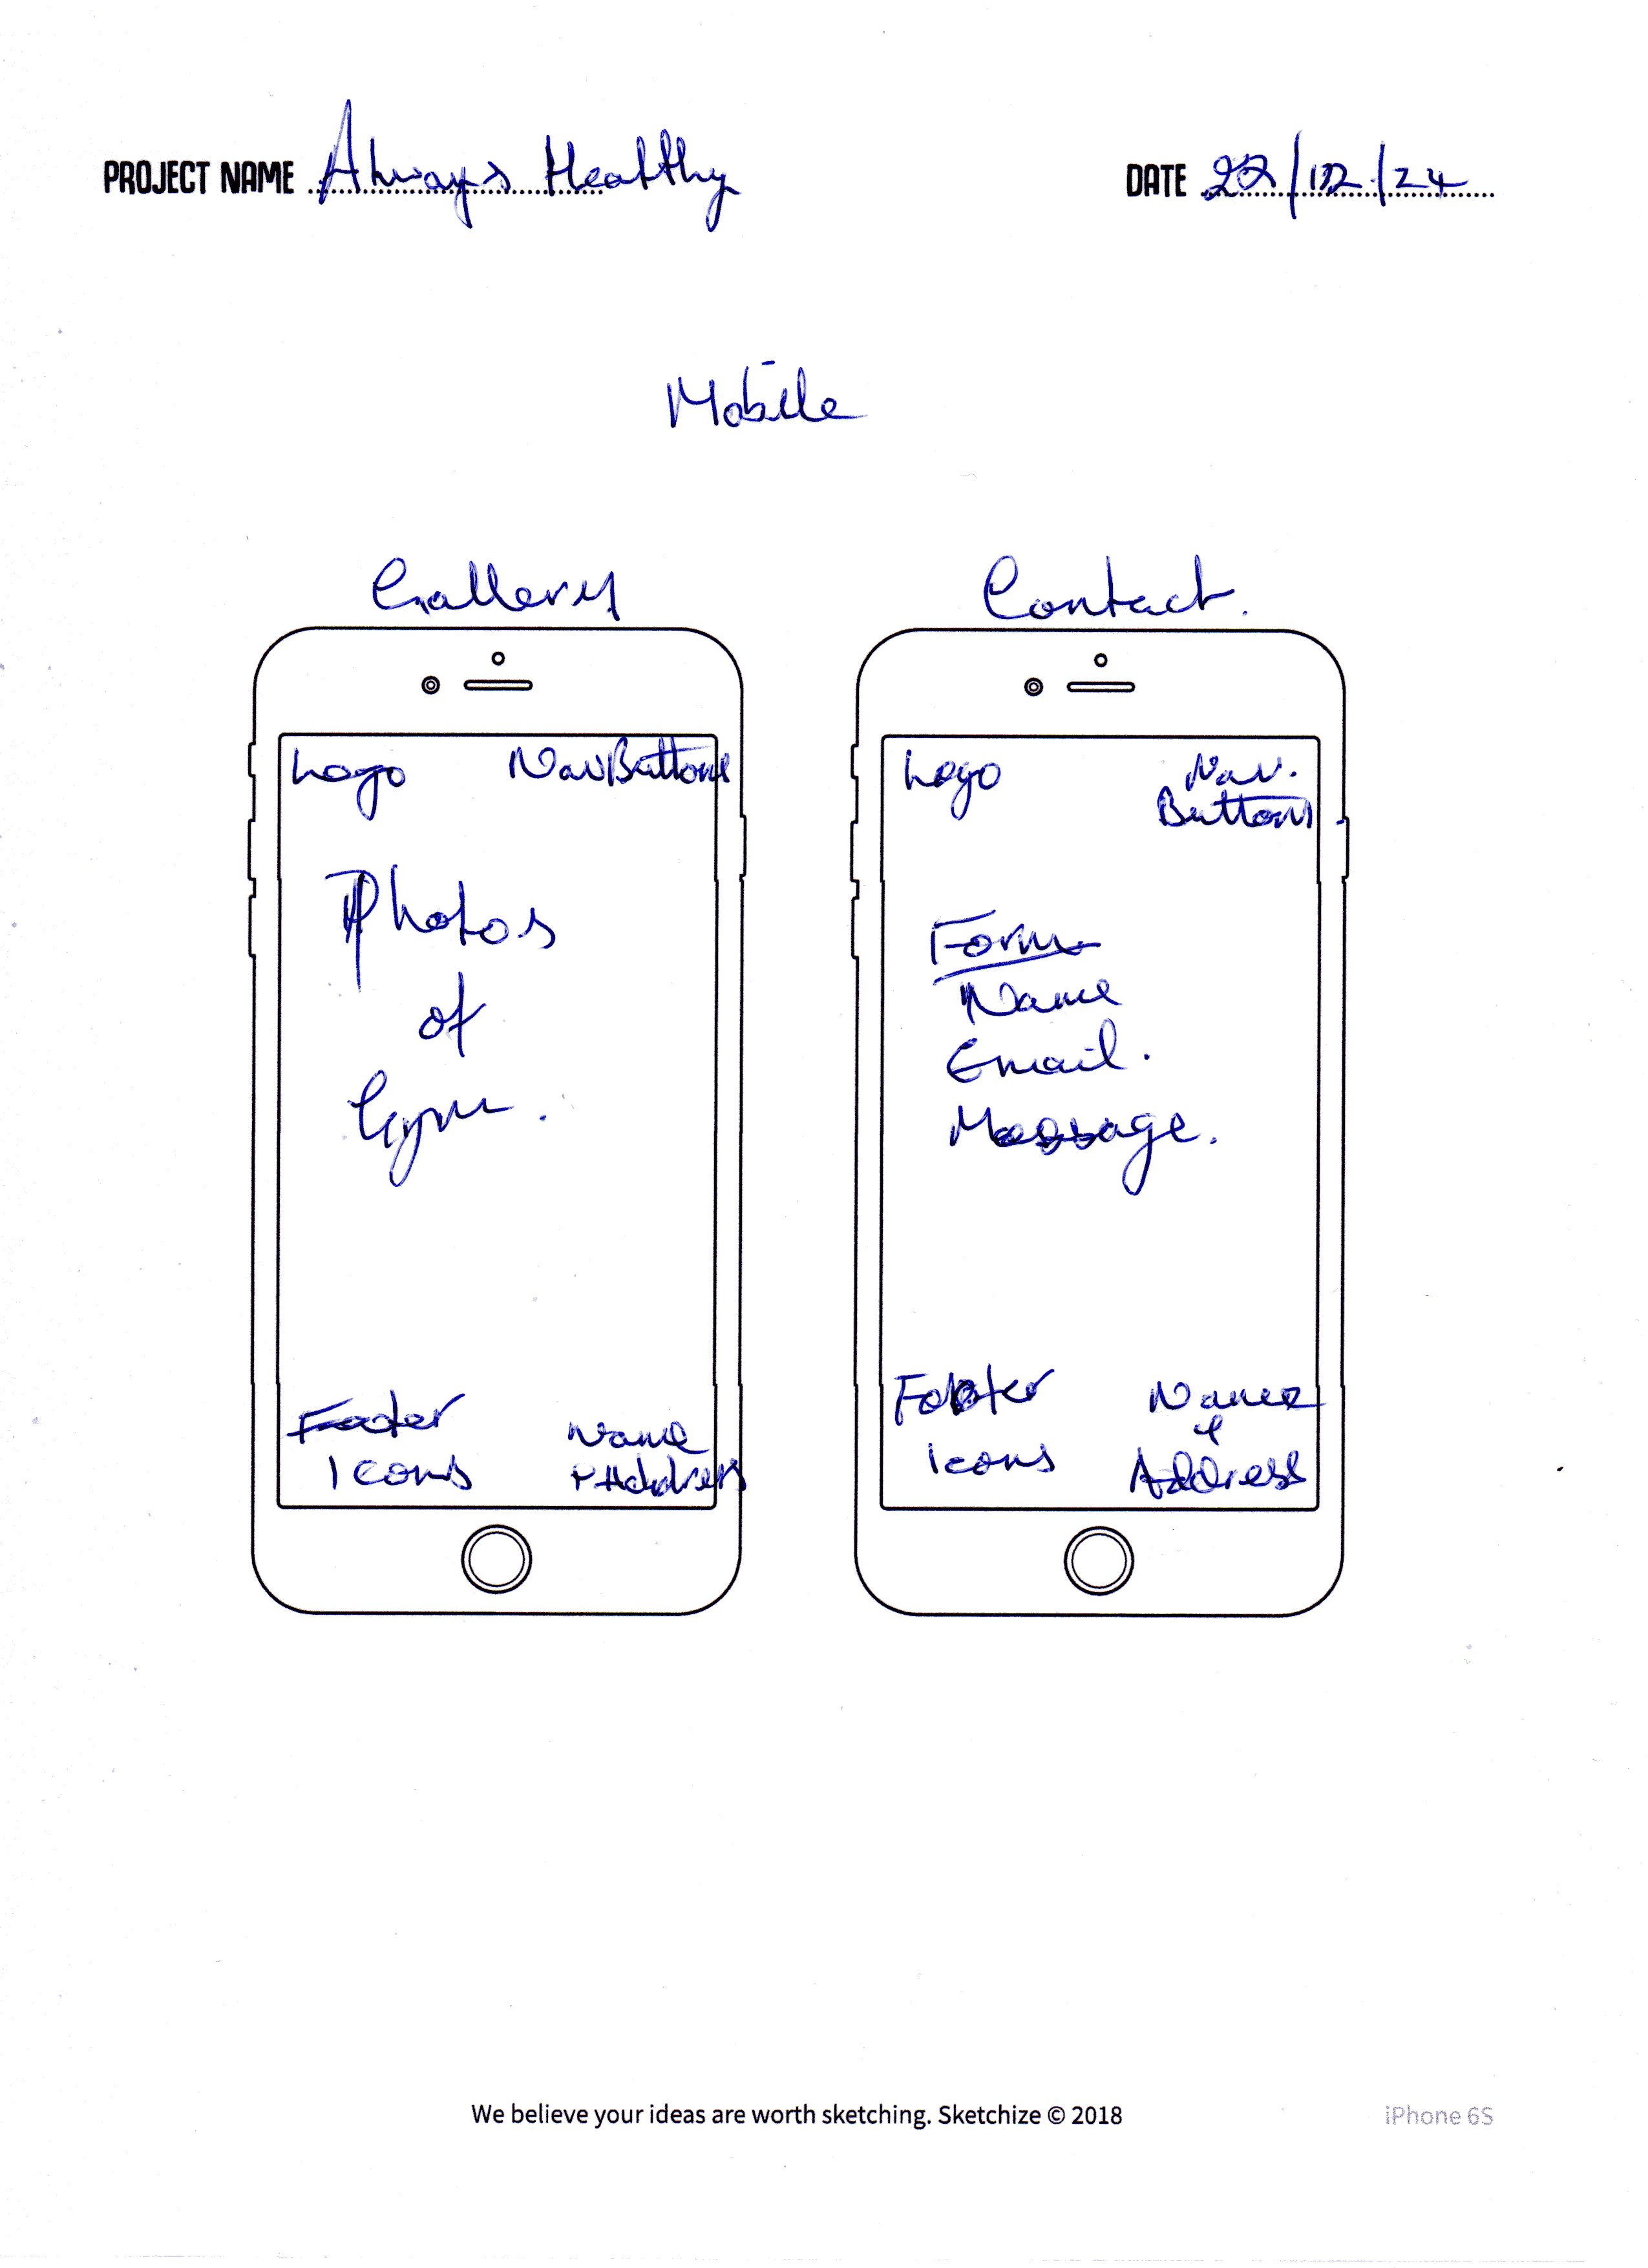 PROJECT NAME Always Healthy
DATE 22/12/24
Mobile
Gallery
Logo NavButtons
Photos
of
Gym.
Footer
Icons
Name
+ Address
Contact.
Logo
Nav.
Buttons
Form
Name
Email.
Message.
Footer
Icons
Name
&
Address
We believe your ideas are worth sketching. Sketchize © 2018
iPhone 6S